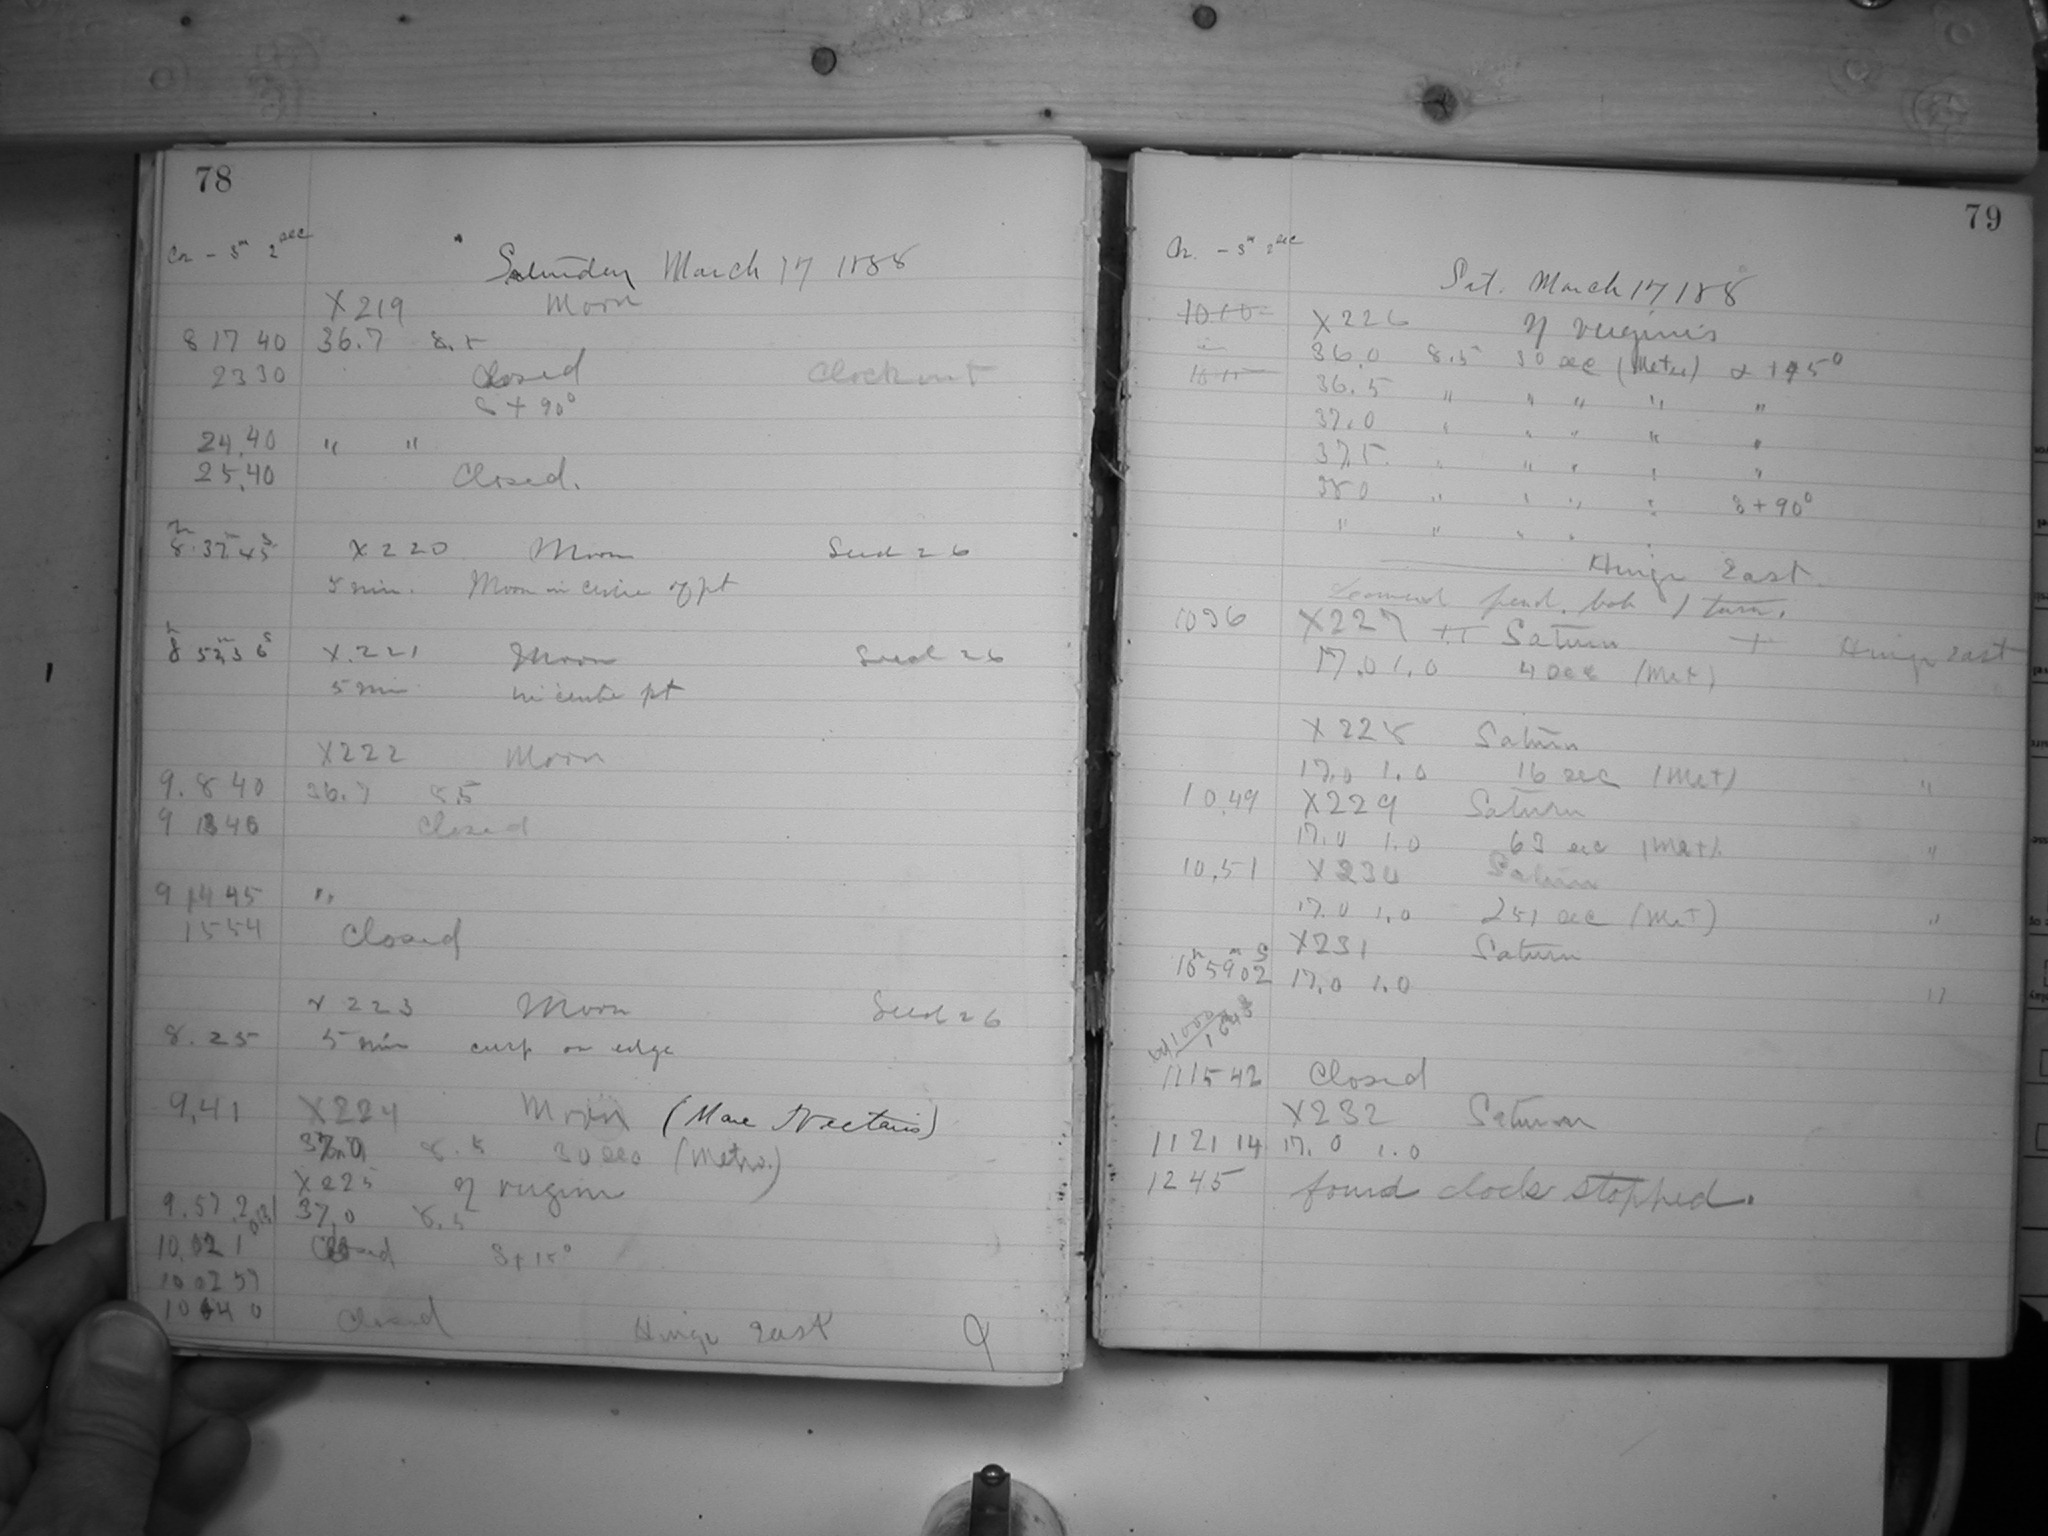 78
Cr - 3m 2sec
Saturday March 17 1888
X219 Moon
8 17 40 36.7 8.5
23 30 Closed Clock out
δ + 90°
24.40 " "
25.40 Closed.
8h 37m 45s X220 Moon Seed 26
5 min. Moon in centre of pt
8h 52m 36s X.221 Moon Seed 26
5 min in centre pt
X222 Moon
9.8 40 36.7 8.5
9 13 40 Closed
9 14 45 "
15 54 Closed
X223 Moon Seed 26
8.25 5 min cusp on edge
9,41 X224 Moon (Mare Nectaris)
37.0 8.5 30 sec (Metro.)
X225 η virginis
9.57.2 37.0 8.5
10.02 1 Closed δ + 15°
10 02 57
10 04 40 Closed Hinge East
79
Cr. - 3m 2sec
Sat. March 17 188
10 10 X226 η virginis
36.0 8.5 30 sec (Metro) α + 45°
36.5 " " " " "
37.0 " " " " "
37.5 " " " " "
38.0 " " " " δ + 90°
" " " "
Hinge East.
pend. bob 1 turn.
1036 X227 Saturn + Hinge East
17.0 1.0 4 sec (Met)
X228 Saturn
17.0 1.0 16 sec (Met) "
10.49 X229 Saturn
17.0 1.0 63 sec (Met). "
10,51 X230 Saturn
17.0 1.0 251 sec (Met) "
X231 Saturn
10h 59m 02s 17.0 1.0 "
11 15 42 Closed
X232 Saturn
11 21 14 17.0 1.0
12 45 found clock stopped.